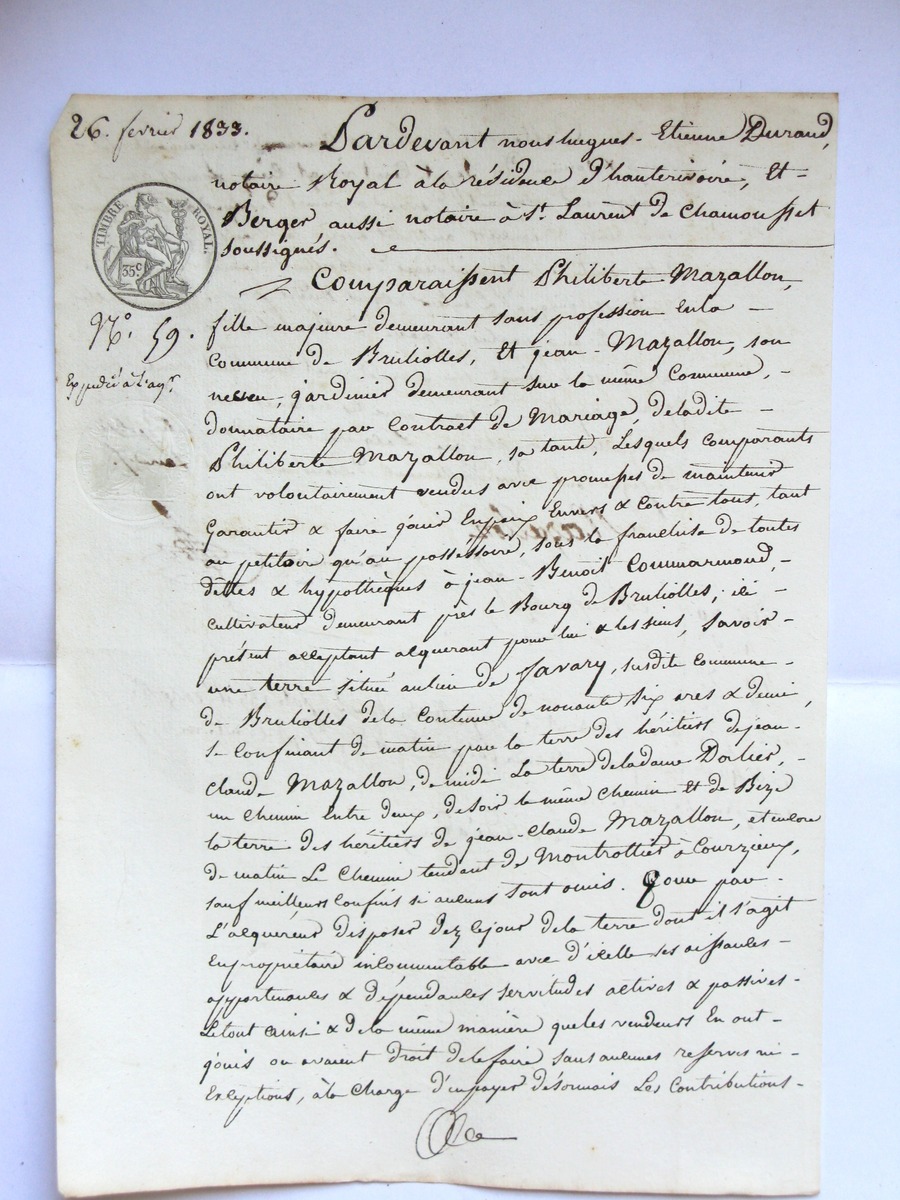 26. fevrier 1833.
Pardevant nous hugues - Etienne Durand,
notaire Royal à la résidence d'hauterivoire, Et -
Berger aussi notaire à St. Laurent de Chamousset
soussignés.
TIMBRE ROYAL.
35c
Comparaissent Philiberte Mazallon,
N.o 59.
fille majeure demeurant sans profession en la -
Commune de Brulliolles, Et jean - Mazallon, son
Expédié à l'aqr.
neveu, jardinier demeurant sur la même Commune, -
donnataire par Contract de Mariage, de ladite -
Philiberte Mazallon, sa tante, Lesquels comparants
ont volontairement vendus avec promesses de maintenir
Garantir & faire jouir En paix Envers & Contre tous, tant
au petitoire qu'au possessoire, sous la franchise de toutes
dettes & hypothèques à jean - Benoit Commarmond, -
cultivateur demeurant près le Bourg de Brulliolles, ici -
présent acceptant acquerant pour lui & les siens, Savoir -
une terre située au lieu de favary, susdite Commune -
de Brulliolles de la Contenue de nonante Six ares & demi,
se Confinant de matin par la terre des héritiers de jean -
Claude Mazallon, de midi La terre de la dame Dorlier, -
un Chemin Entre deux, de soir le même Chemin Et de Bize
la terre des héritiers de jean - Claude Mazallon, et encore
de matin Le Chemin tendant de Montrottier à Courzieux,
sauf meilleurs Confins si aucuns sont omis. Pour par -
L'acquéreur disposer dez ce jour de la terre dont il s'agit
En propriétaire incommutable avec d'icelle ses aissances -
appartenances & dépendances servitudes actives & passives -
Le tout ainsi & de la même manière que les vendeurs En ont -
jouis ou avaient droit de le faire sans aucunes reserves ni -
Exceptions, à la Charge d'en payer désormais Les Contributions -